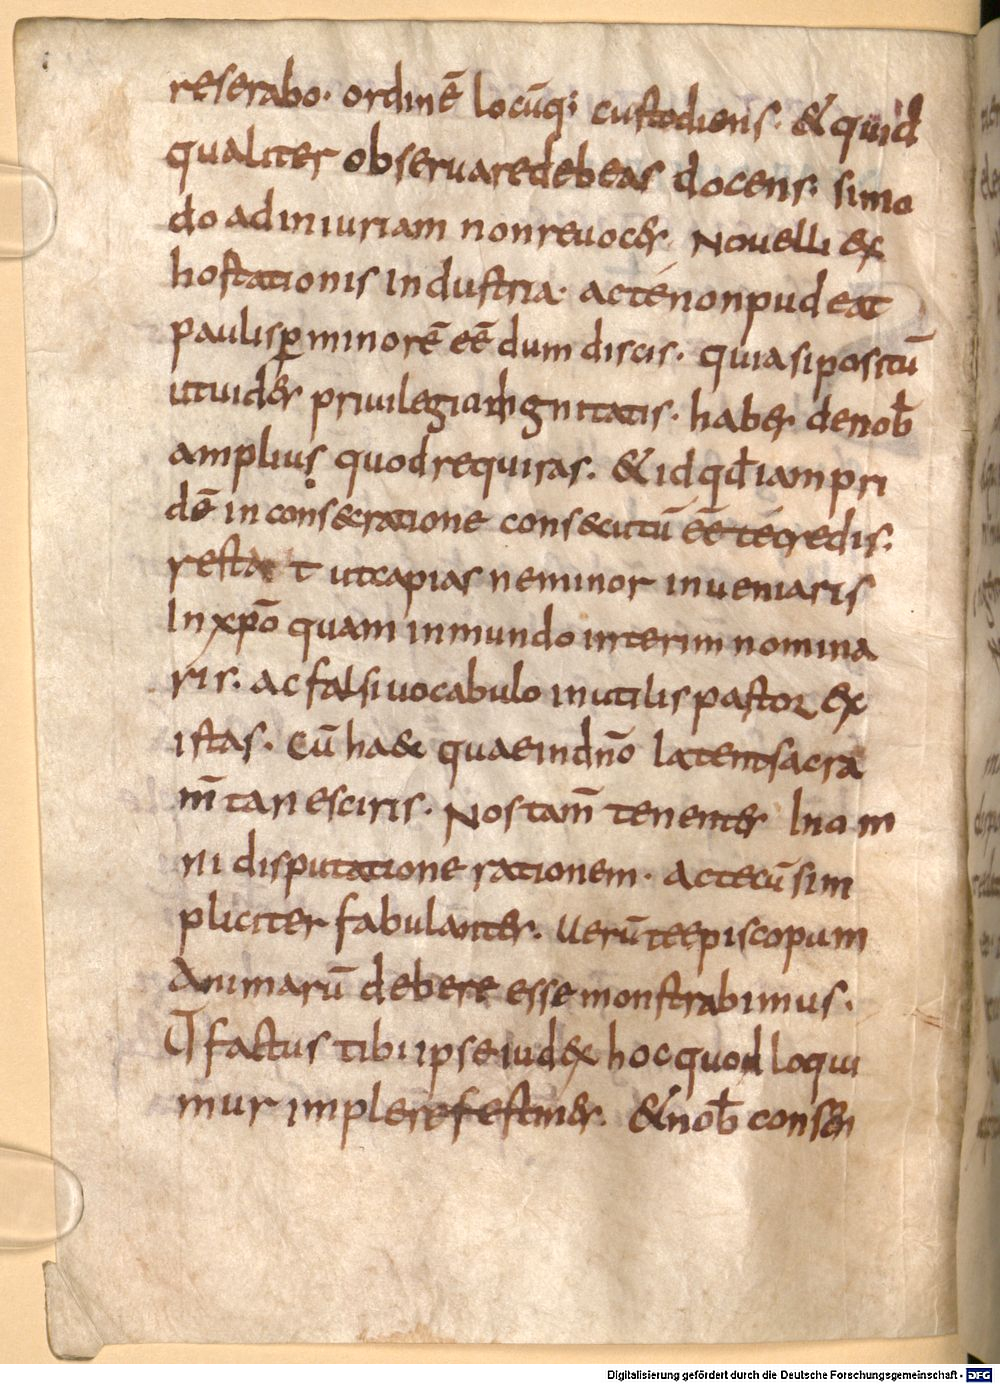 reserabo· ordinē locūq; custodiens· & quid
qualiter obseruaredebeas docens· simo
do adiniuriam nonreuocet· Nouelli ex
hortationis Industria· actenonpudeat
paulisꝑminorē eē dum discis· quiasipositū
utuidet̄ priuilegium dignitatis· habet denob̄
amplius quodrequiras· & idqd̄iampri
dē in consecratione consecutū eē tecredis·
restat utcapias neminor inueniaris
Inxpō quam inmundo interim nomina
ris· acfalsiuocabulo inutilis pastor ex
istas· Cū haec quaeindn̄o latentsacra
m̄tanesciris· Nos tam̄ tenemur Inom
ni disputatione rationem· actecūsim
pliciter fabulantur· Uerūteepiscopum
Animarū debere esse monstrabimus·
factus tibi ipseiudex hocquod loqui
mur implerefestinet· & nob̄ consen
Digitalisierung gefördert durch die Deutsche Forschungsgemeinschaft - DFG